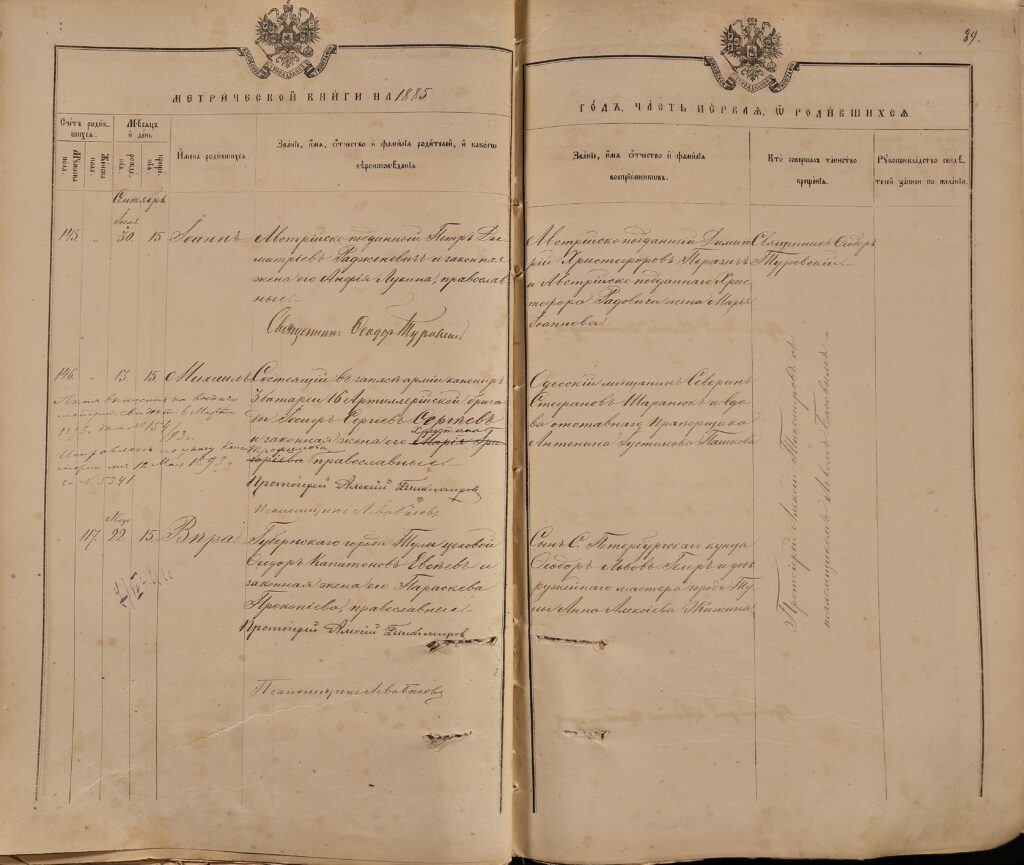 39.
МЕТРИЧЕСКОЙ КНИГИ НА 1885
ГОДЪ, ЧАСТЬ ПЕРВАЯ, Ѿ РОДИВШИХСЯ
Счетъ родившихся.
Мужеска пола
Женска пола
Мѣсяцъ и день
рожденія
крещенія
Имена родившихся.
Званіе, имя, отчество и фамилія родителей, и какого
вѣроисповѣданія.
Званіе, имя, отчество и фамилія
воспріемниковъ.
Кто совершалъ таинство
крещенія.
Рукоприкладство свидѣ-
телей записи по желанію.
Сентябрь
145.
30.
15
Іоаннъ
Австрійско-подданный Петръ Ди-
митріевъ Радженовичъ и законная
жена его Анфія Лукина, православ-
ные.
Священникъ Ѳеодоръ Туровскій
Австрійско-подданный Димит-
рій Христофоровъ Перазичъ
и Австрійско-подданнаго Хрис-
тофора Радовича жена Марья
Іоаннова.
Священникъ Ѳеодоръ
Туровскій.
146.
13.
15.
Михаилъ
Состоящій въ запасѣ арміи канониръ
2 батареи 16 Артиллерійской брига-
ды Сергѣевъ
и законная жена его Марія
православные.
Протоіерей Алексій Тихомировъ
Псаломщикъ Лево Басовъ
12 Мая 1893.
за № 5341
Одесскій мѣщанинъ Северинъ
Стефановъ Шаранюкъ и вдо-
ва отставнаго Прапорщика
Антонина Густавова Пашкова
117
22.
15.
Вѣра
Губернскаго города Тулы цеховой
Ѳеодоръ Капитоновъ Евсѣевъ и
законная жена его Параскева
Прокопіева, православные.
Протоіерей Алексій Тихомировъ
Псаломщикъ Лево Басовъ
Сынъ С. Петербургскаго купца
Ѳеодоръ Львовъ
ружейнаго мастера города Ту-
лы Анна Алексіева
Протоіерей Алексій Тихомировъ съ
псаломщикомъ